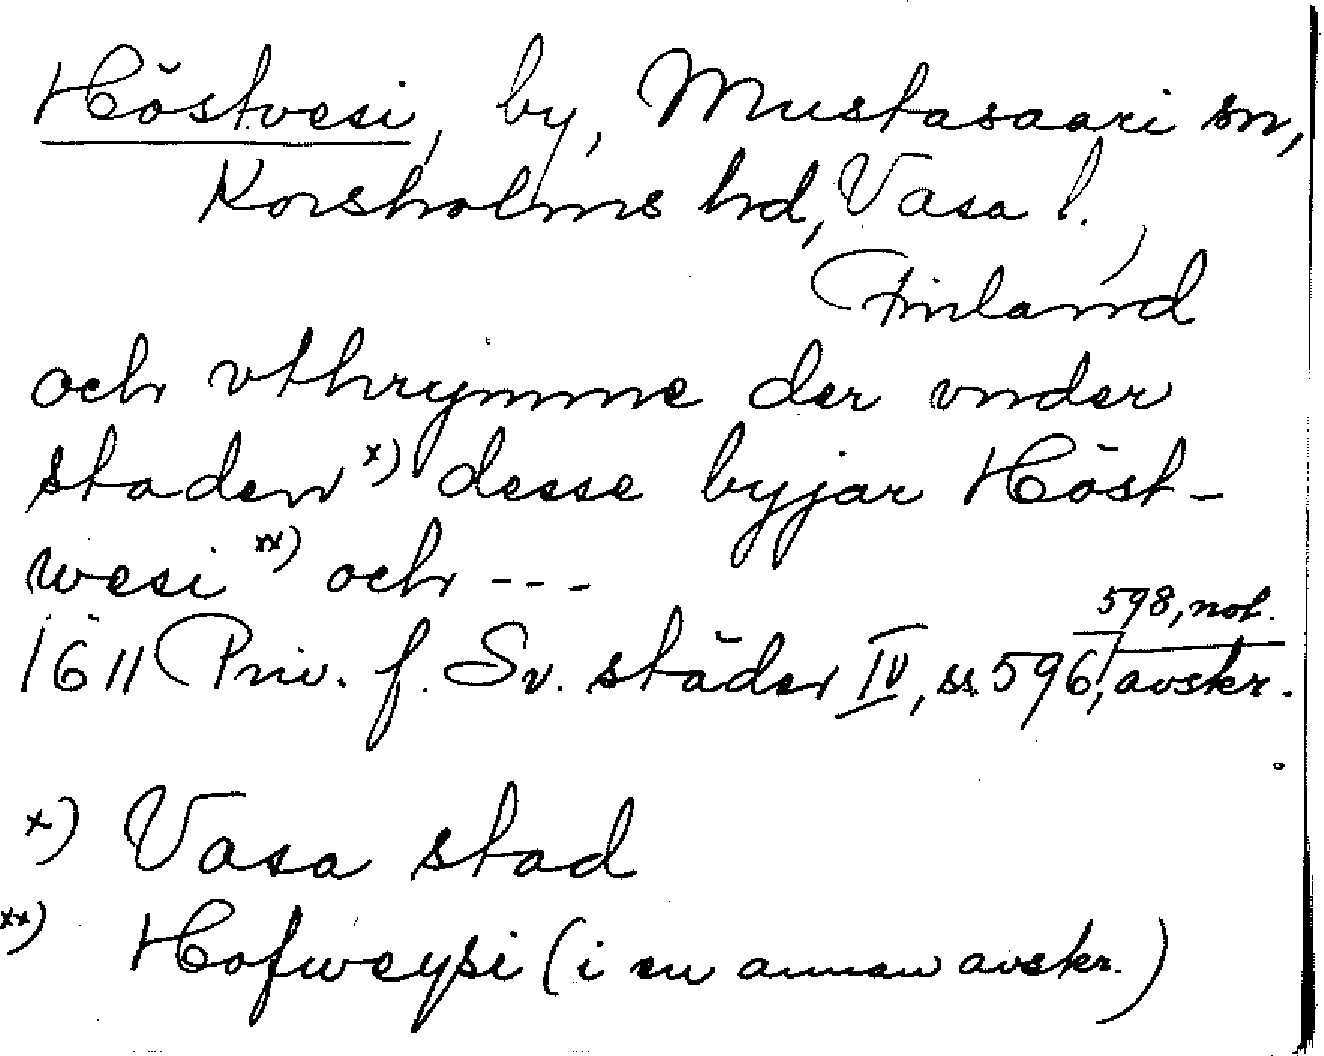 Höstvesi, by, Mustasaari sn,
Korsholms hd, Vasa l.,
Finland
och vthrymme der vnder
staden x) desse byjar Höst-
wesi xx) och ---
598, not.
1611 Priv. f. Sv. städer IV, ss. 596, avskr.
x) Vasa stad
xx) Hofweysi (i en annan avskr.)